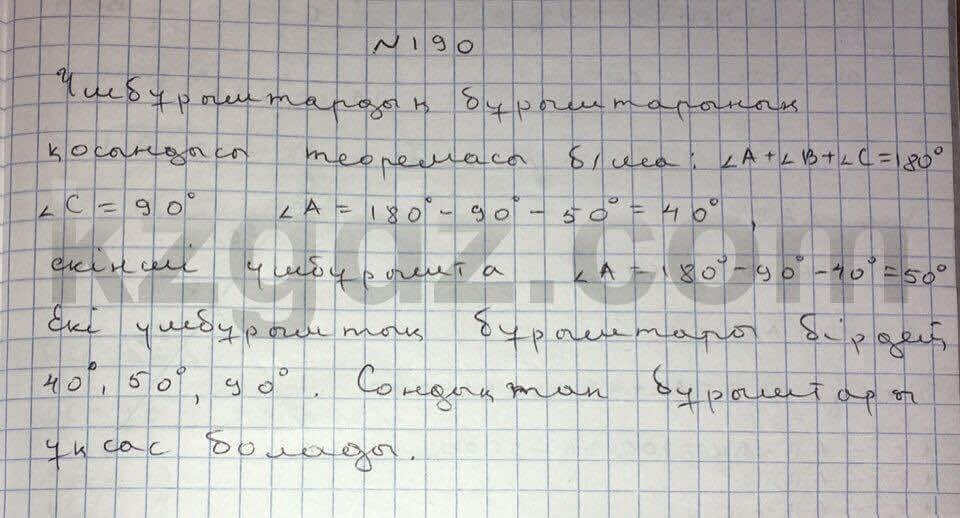 N190
Үшбұрыштардың бұрыштарының
қосындысы теоремасы б/ша: ∠A+∠B+∠C=180°
∠C = 90° ∠A = 180°-90°-50°=40°,
екінші үшбұрышта ∠A=180°-90°-40°=50°
Екі үшбұрыштың бұрыштары бірдей,
40°, 50°, 90°. Сондықтан бұрыштары
ұқсас болады.
kzgdz.com